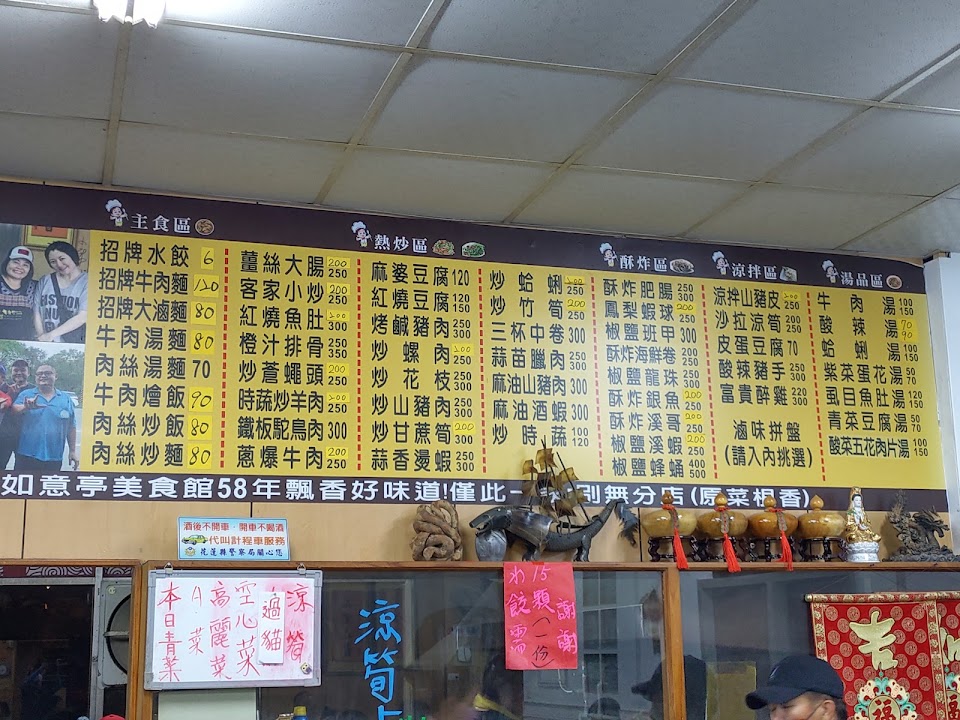 主食區
招牌水餃 6
招牌牛肉麵 120
招牌大滷麵 80
牛肉湯麵 80
肉絲湯麵 70
牛肉燴飯 90
肉絲炒飯 80
肉絲炒麵 80
熱炒區
薑絲大腸 200 250
客家小炒 200 250
紅燒魚肚 200 300
橙汁排骨 250 350
炒蒼蠅頭 200 250
時蔬炒羊肉 200 250
鐵板駝鳥肉 300
蔥爆牛肉 200 250
麻婆豆腐 120
紅燒豆腐 150 180
烤鹹豬肉 250 300
炒螺肉 200 250
炒花枝 250 300
炒山豬肉 250 300
炒甘蔗筍 200 300
蒜香燙蝦 250 300
炒蛤蜊 200 250
炒竹筍 200 250
三杯中卷 300 400
蒜苗臘肉 250 300
麻油山豬肉 300
麻油酒蝦 300
炒時蔬 100 120
酥炸區
酥炸肥腸 250 300
鳳梨蝦球 200 250
椒鹽班甲 300
酥炸海鮮卷 200 250
椒鹽龍珠 250 300
酥炸銀魚 200 250
酥炸溪哥 200 250
椒鹽溪蝦 200
椒鹽蜂蛹 400 500
涼拌區
涼拌山豬皮 200
沙拉涼筍 200
皮蛋豆腐 70
酸辣豬手 250 300
富貴醉雞 220 300
滷味拼盤
(請入內挑選)
湯品區
牛肉湯 100 150
酸辣湯 70 90
蛤蜊湯 100 150
紫菜蛋花湯 50 70
虱目魚肚湯 120 150
青菜豆腐湯 50 70
酸菜五花肉片湯 100 150
如意亭美食館58年飄香好味道!僅此一 別無分店(原菜根香)
酒後不開車．開車不喝酒
代叫計程車服務
花蓮縣警察局關心您
本日青菜
A菜
高麗菜
空心菜
過貓
涼筍
涼筍
水餃需
15顆(一份)
謝謝
吉
福